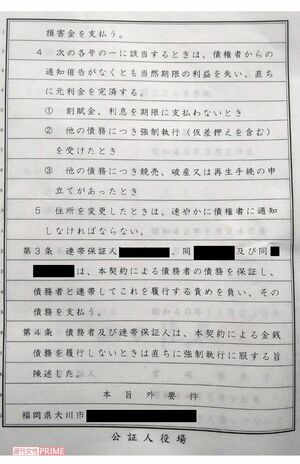 損害金を支払う。
4 次の各号の一に該当するときは、債権者からの
通知催告がなくとも当然期限の利益を失い、直ち
に元利金を完済する。
① 割賦金、利息を期限に支払わないとき
② 他の債務につき強制執行（仮差押えを含む）
を受けたとき
③ 他の債務につき競売、破産又は再生手続の申
立てがあったとき
5 住所を変更したときは、速やかに債権者に通知
しなければならない。
第3条 連帯保証人 、同 及び同
は、本契約による債務者の債務を保証し、
債務者と連帯してこれを履行する責めを負い、その
債務を支払う。
第4条 債務者及び連帯保証人は、本契約による金銭
債務を履行しないときは直ちに強制執行に服する旨
陳述した。
本旨外要件
福岡県大川市
公証人役場
週刊女性PRIME